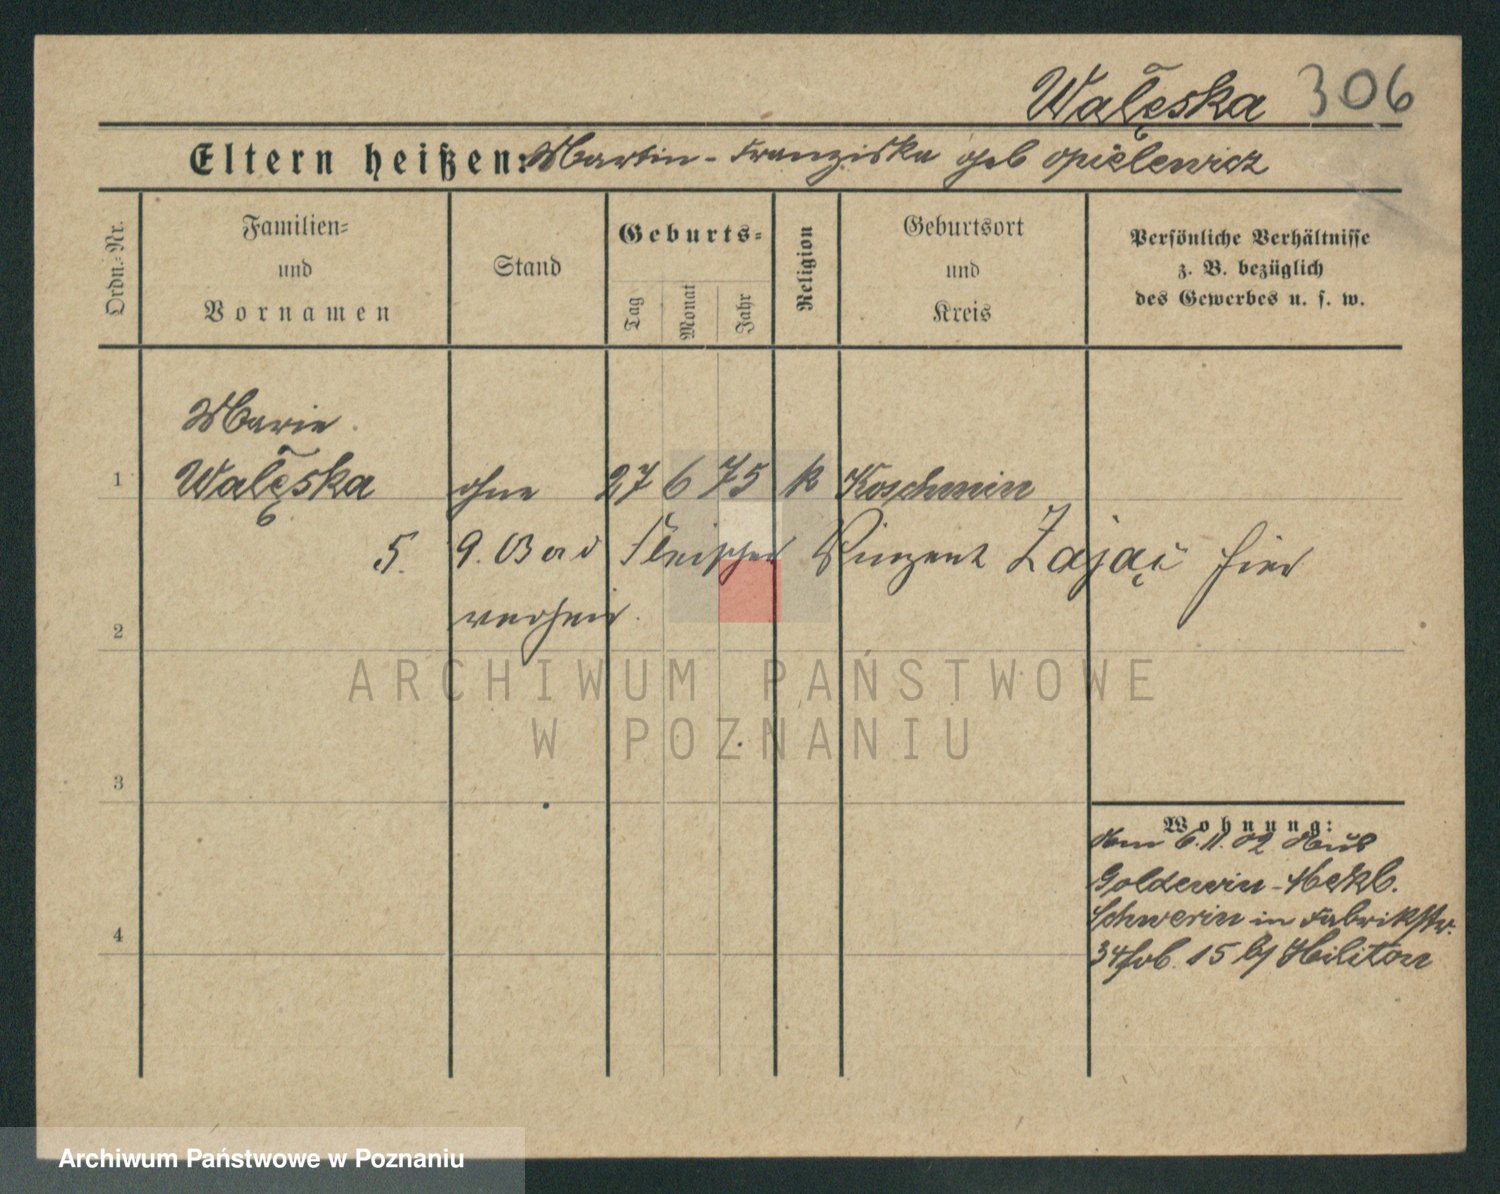 Walęska 306
Eltern heißen: Martin - Franziska geb Opielewicz
Ordn.-Nr.
Familien-
und
Vornamen
Stand
Geburts-
Tag
Monat
Jahr
Religion
Geburtsort
und
Kreis
Persönliche Verhältnisse
z. B. bezüglich
des Gewerbes u. s. w.
Marie
1 Walęska ohne 27 6 75 k Koschmin
5. 9. 03 Fleischer Vinzent Zając hier
2 verheir.
3
4
Wohnung:
Am 6.11.02 Aus
Goldewin - Mekl.
Schwerin in Fabrikstr.
34 15 b/
ARCHIWUM PAŃSTWOWE
W POZNANIU
Archiwum Państwowe w Poznaniu